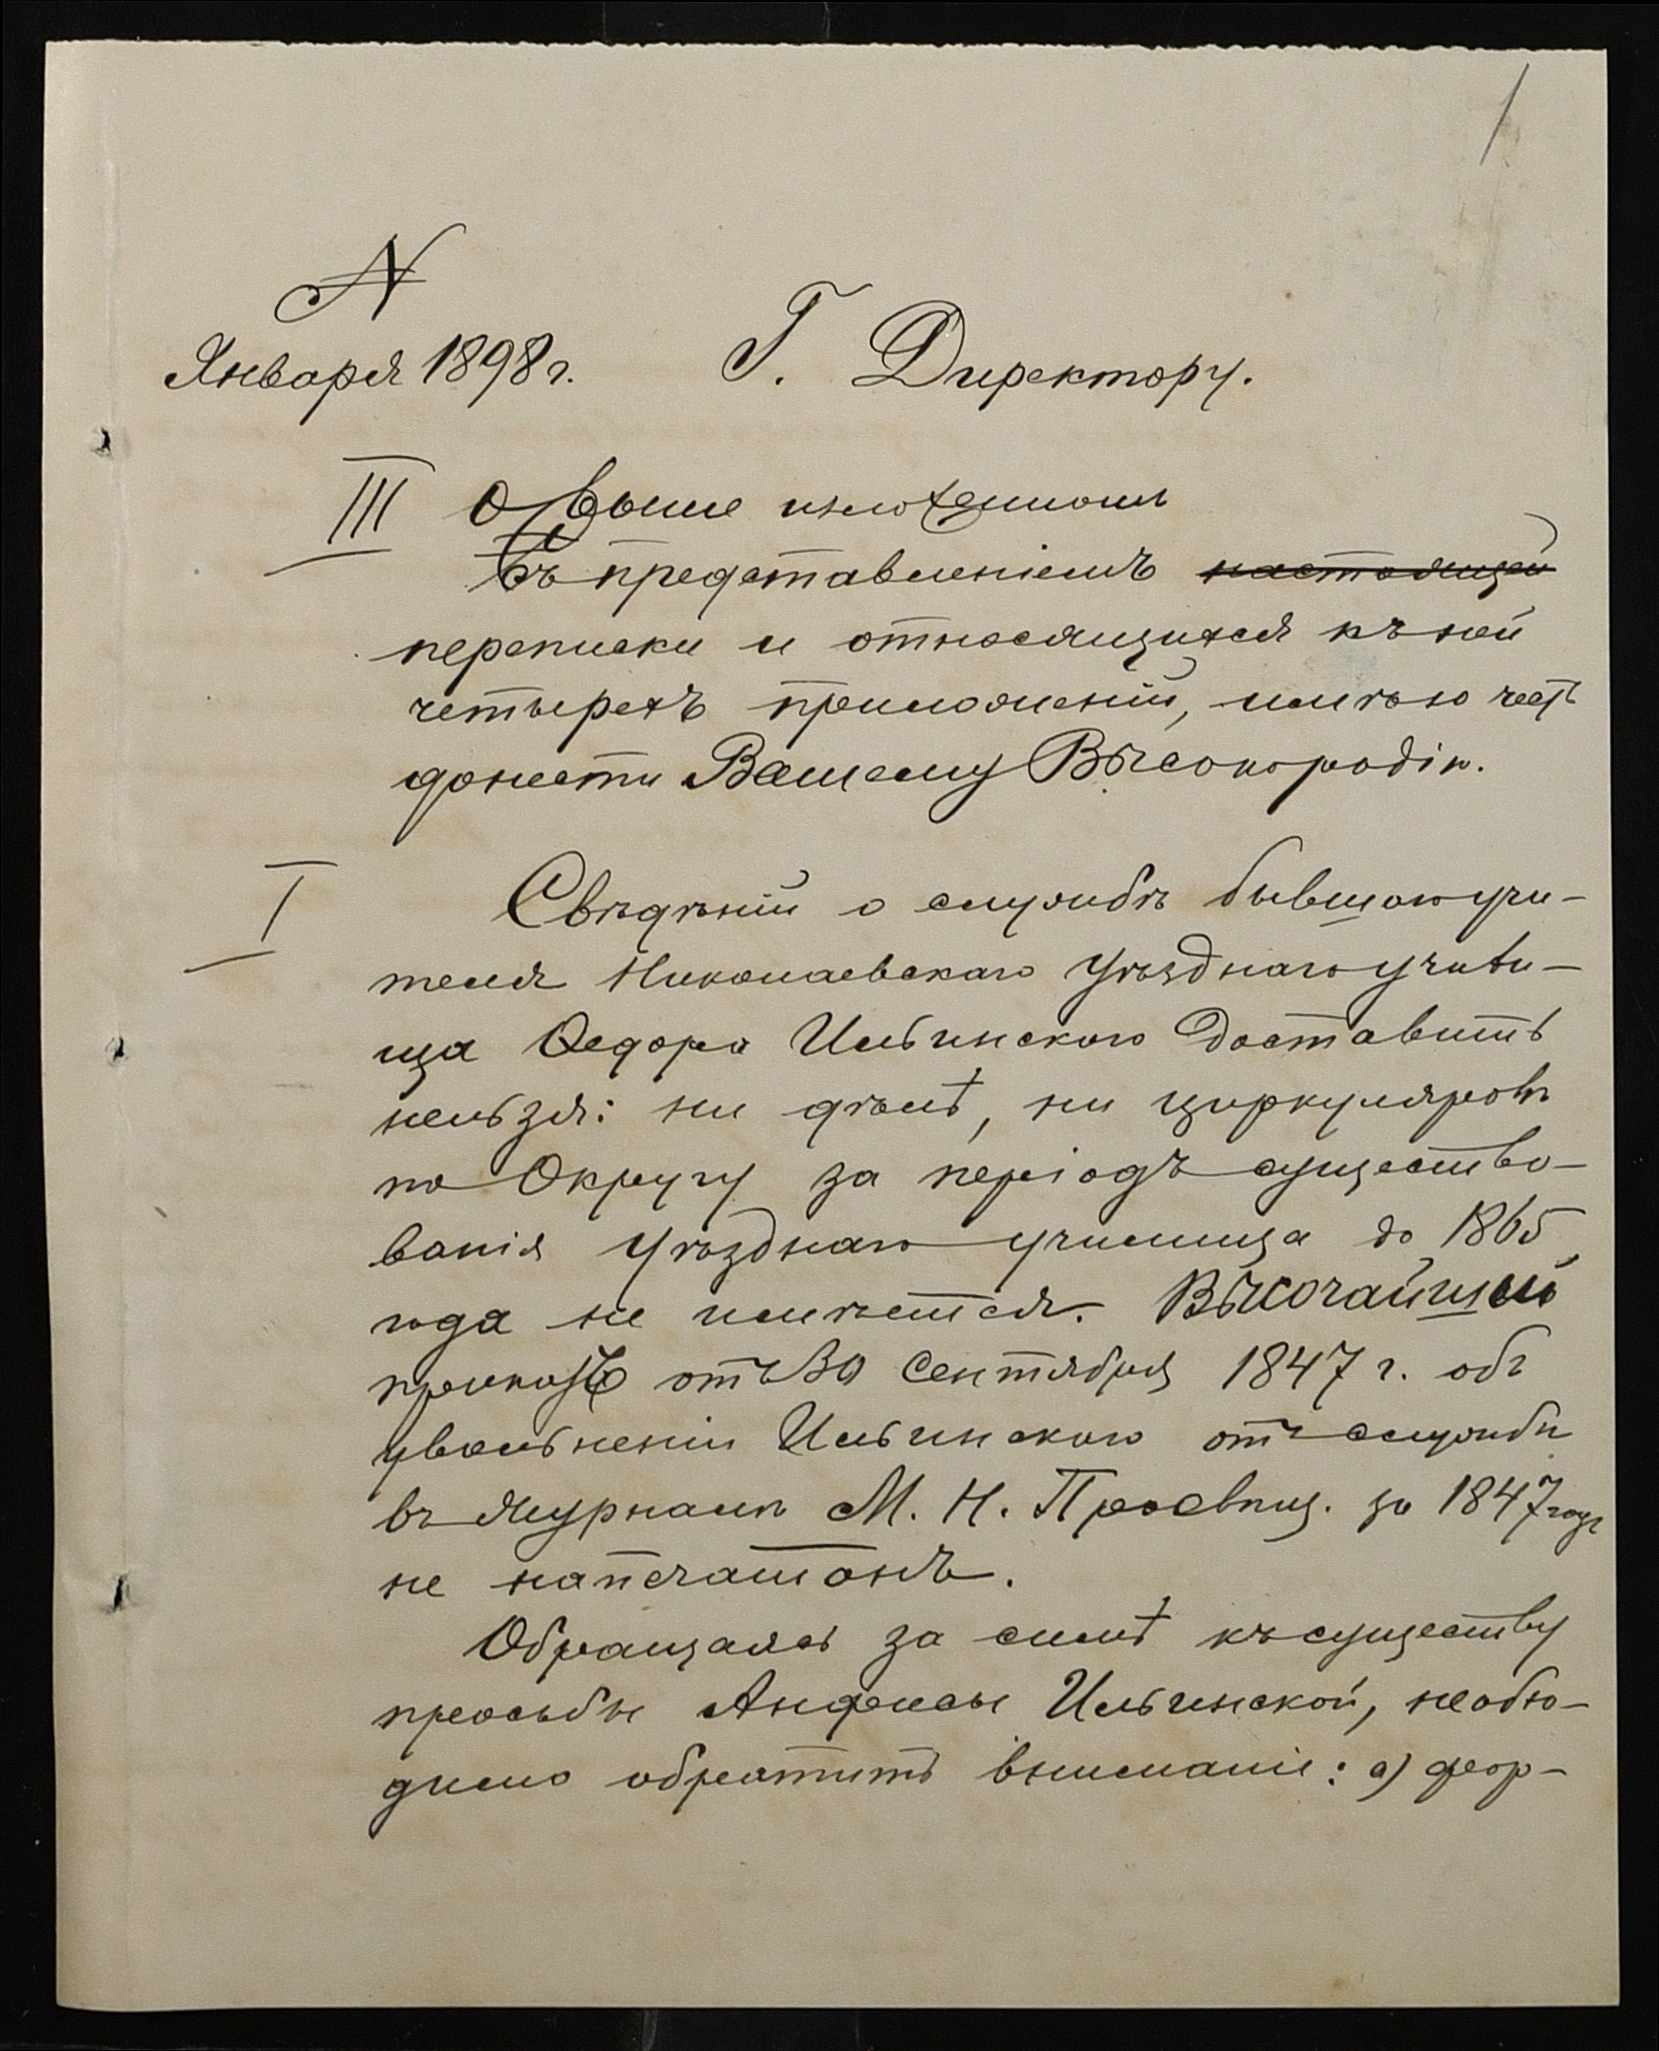 1
N
Января 1898 г. Г. Директору.
III О выше изложенномъ
Съ представленіемъ настоящей
переписки и относящихся къ ней
четырехъ приложеній, имѣю честь
донести Вашему Высокородію.
I Свѣдѣній о службѣ бывшаго учи-
теля Николаевскаго Уѣзднаго учили-
ща Ѳедора Ильинскаго доставить
нельзя: ни дѣлъ, ни циркуляровъ
по Округу за періодъ существо-
ванія Уѣзднаго училища до 1865
года не имѣется. Высочайшій
приказъ отъ 30 Сентября 1847 г. объ
увольненіи Ильинскаго отъ службы
въ Журналѣ М. Н. Просвѣщ. за 1847 годъ
не напечатанъ.
Обращаясь за симъ къ существу
просьбы Анфисы Ильинской, необхо-
димо обратить вниманіе: а) фор-